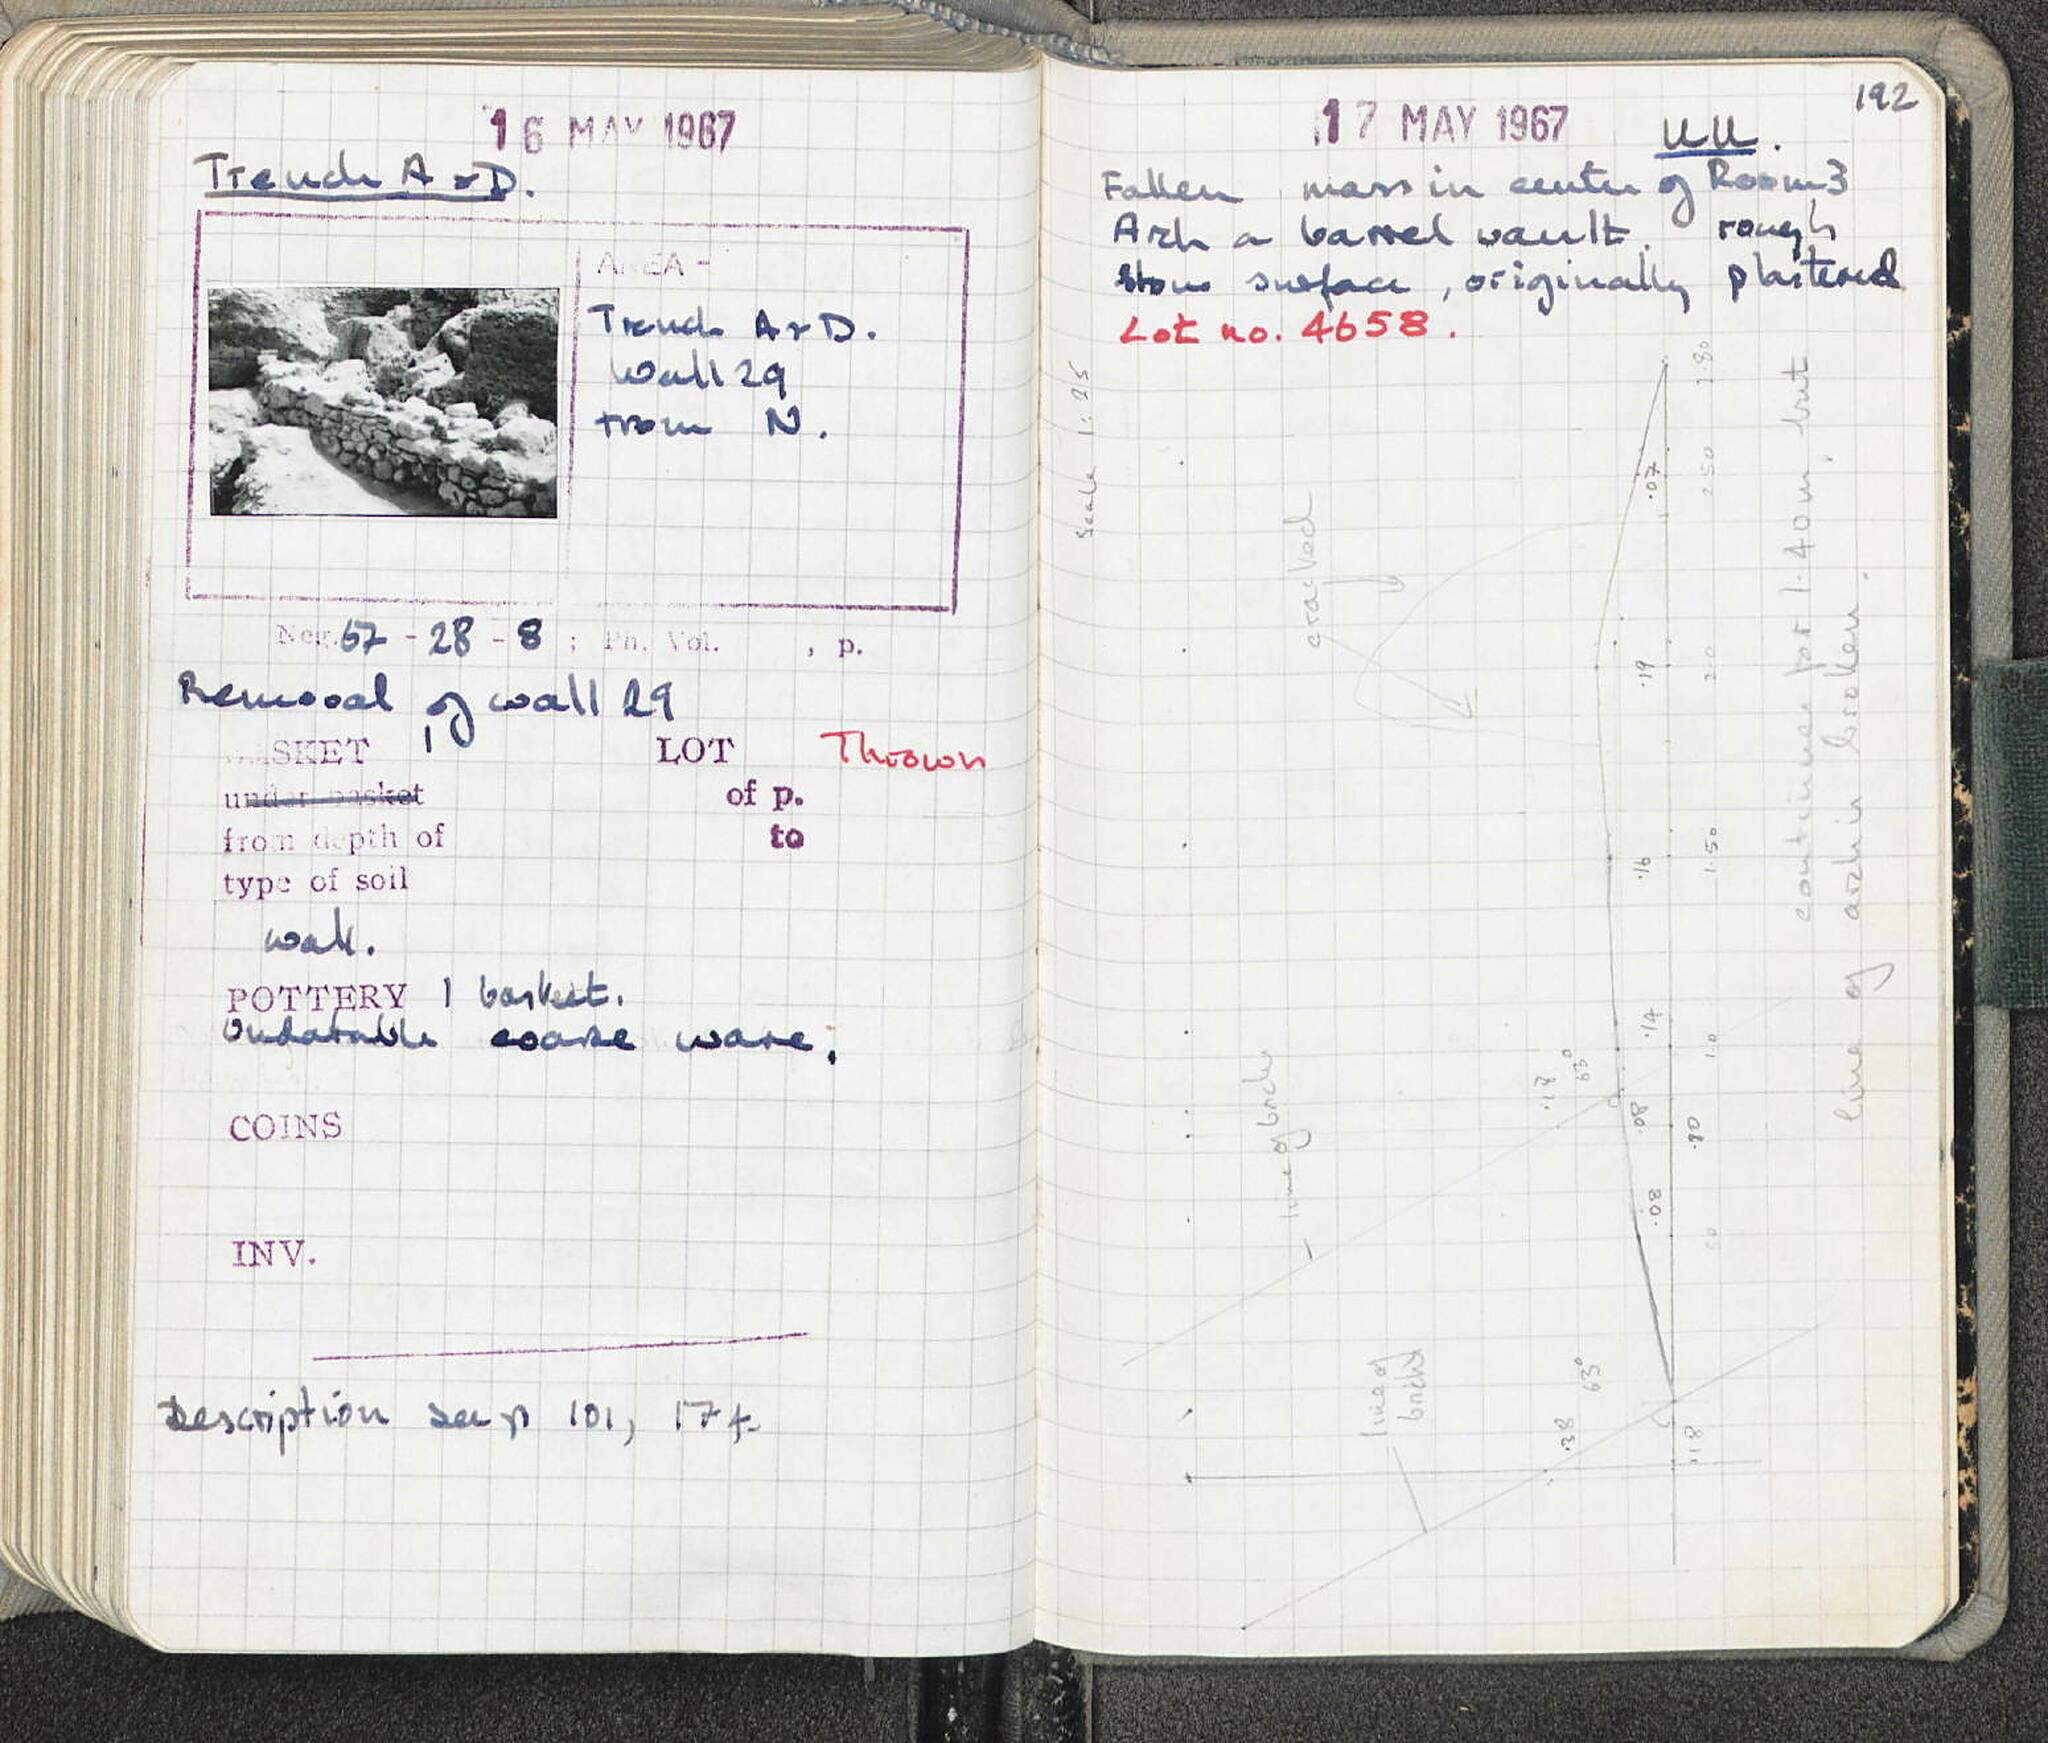 16 MAY 1967
Trench A+D.
AREA -
Trench A+D.
Wall 29
from N.
Neg. 67 - 28 - 8 ; Ph. Vol. , p.
Removal of wall 29
BASKET 1 LOT Thrown
under basket of p.
from depth of to
type of soil
wall.
POTTERY 1 basket.
Undatable coarse ware.
COINS
INV.
Description see p 101, 174
192
17 MAY 1967
Fallen mass in center of Room 3
Arch a barrel vault. rough
stone surface, originally plastered
Lot no. 4658.
Scale 1:25
cracked
line of brick
line of
bricks
.18
63°
.38
63°
.07
.19
.16
.14
.08
.08
2.80
2.50
2.0
1.50
1.0
.80
50
.18
continues for 1.40m, but
line of arch is broken.